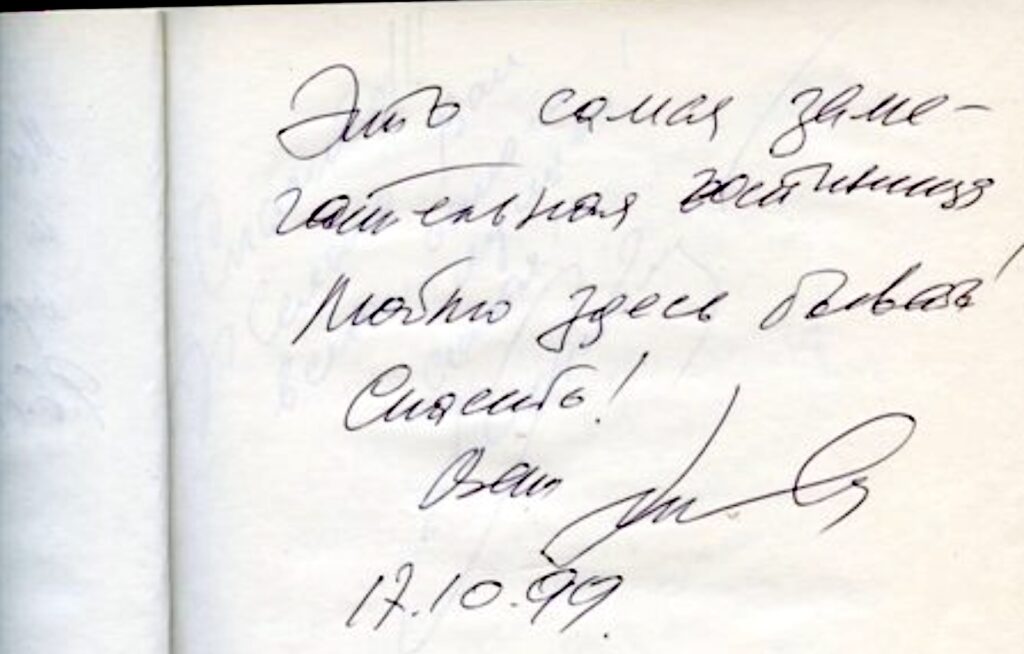 Это самая заме-
чательная гостиница
Люблю здесь бывать!
Спасибо!
Ваш
17.10.99.